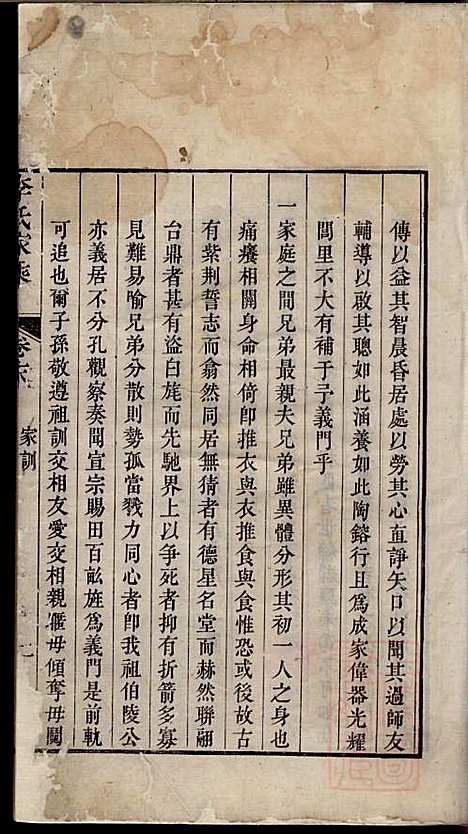 傅以益其智晨昏居處以勞其心直諍矢口以聞其過師友
輔導以啟其聰如此涵養如此陶鎔行且爲成家偉器光耀
閭里不大有補于予義門乎
一家庭之間兄弟最親夫兄弟雖異體分形其初一人之身也
痛癢相關身命相倚卽推衣與衣推食與食惟恐或後故古
有紫荆誓志而翕然同居無猜者有德星名堂而赫然聯翩
台鼎者甚有盜白旄而先馳界上以争死者抑有折箭多寡
見難易喻兄弟分散則勢孤當戮力同心者卽我祖伯陵公
亦義居不分孔觀察奏聞宣宗賜田百畝旌爲義門是前軌
可追也爾子孫敬遵祖訓交相友愛交相親暱毋傾奪毋鬩
李氏家乘
卷六
家訓